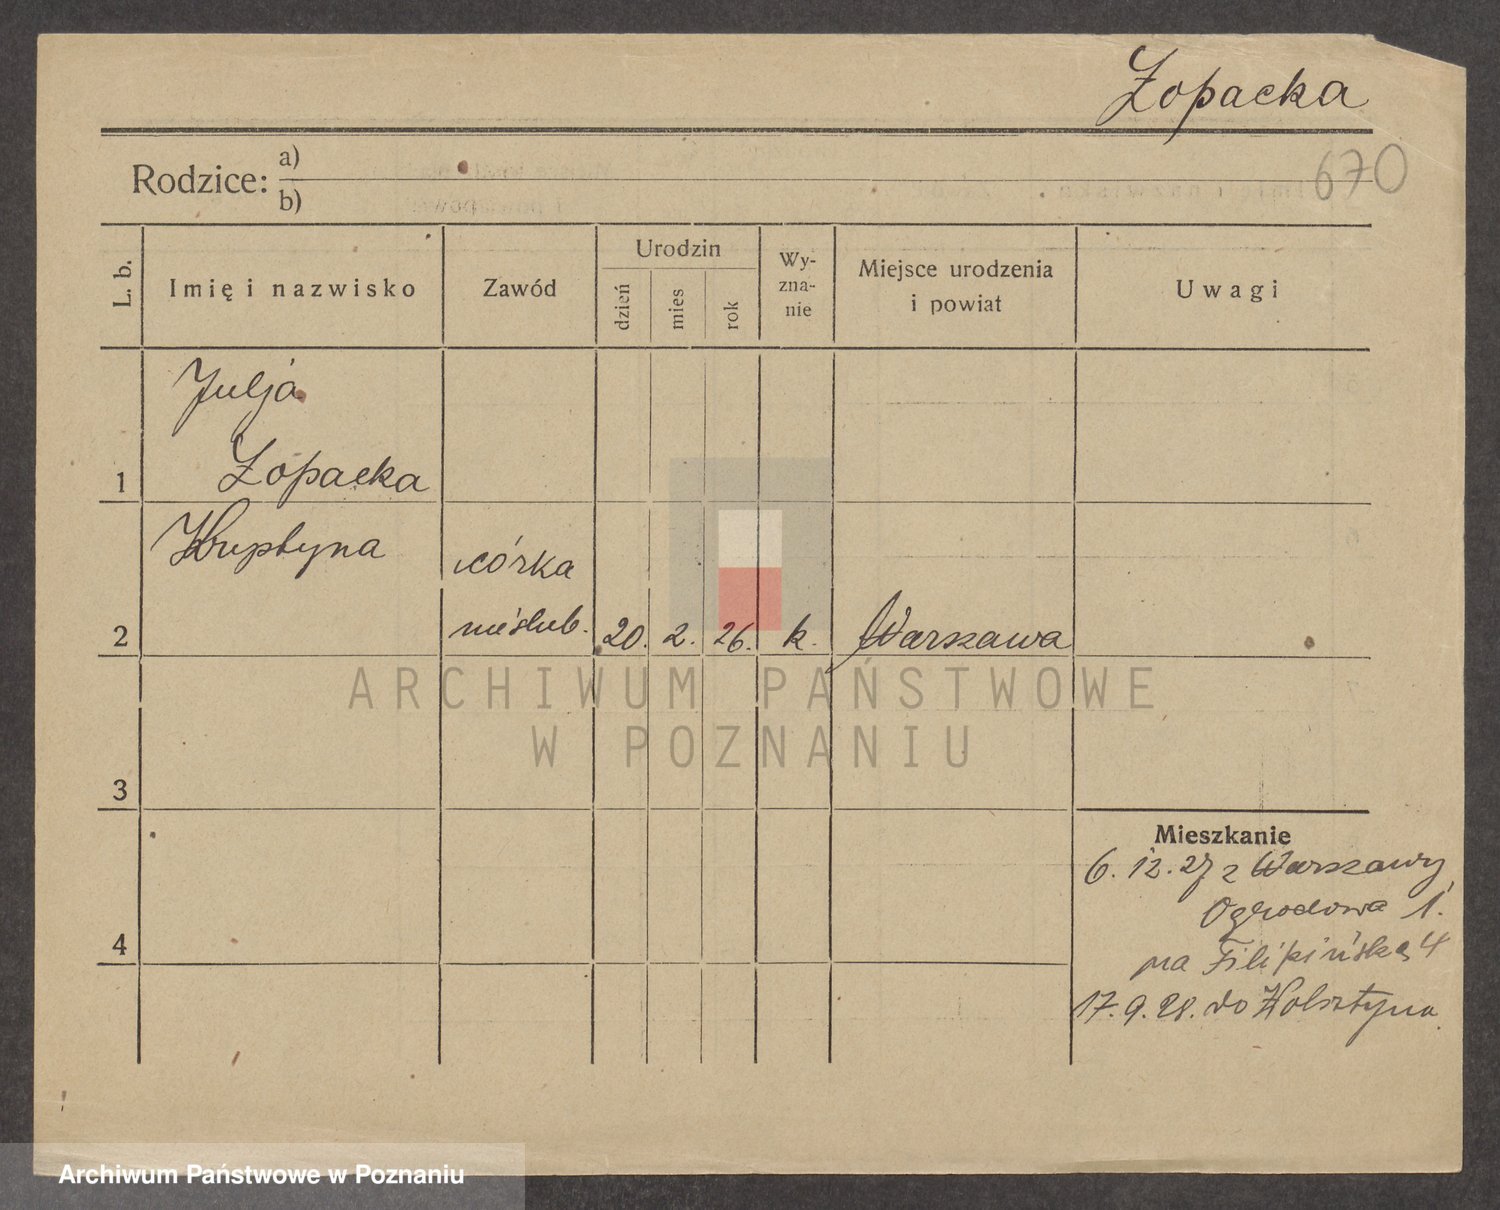 Łopacka
670
Rodzice: a)
b)
L. b.
Imię i nazwisko
Zawód
Urodzin
dzień
mies
rok
Wy-
zna-
nie
Miejsce urodzenia
i powiat
Uwagi
Julja
Łopacka
1
córka
2 nieślub. 20. 2. 26. k. Warszawa
3
4
Mieszkanie
6. 12. 27 z Warszawy
Ogrodowa 1.
na Filipińską 4
17. 9. 28. do Wolsztyna.
ARCHIWUM PAŃSTWOWE
W POZNANIU
Archiwum Państwowe w Poznaniu